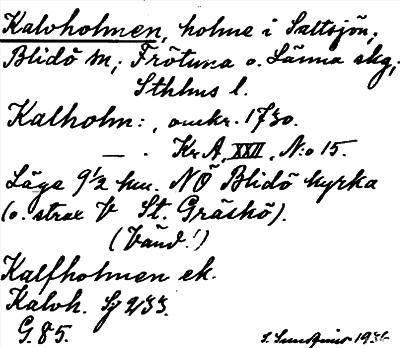 Kalvholmen, holme i Saltsjön,
Blidö sn, Frötuna o. Länna skg,
Sthlms l.
Kalholm:, omkr. 1730.
— . Kr A, XXII, N:o 15.
Läge 9 1/2 km. NÖ Blidö kyrka
(o. strax V St. Gräskö).
(Vänd!)
Kalfholmen ek.
Kalvh. Sj 233.
G. 85.
1936